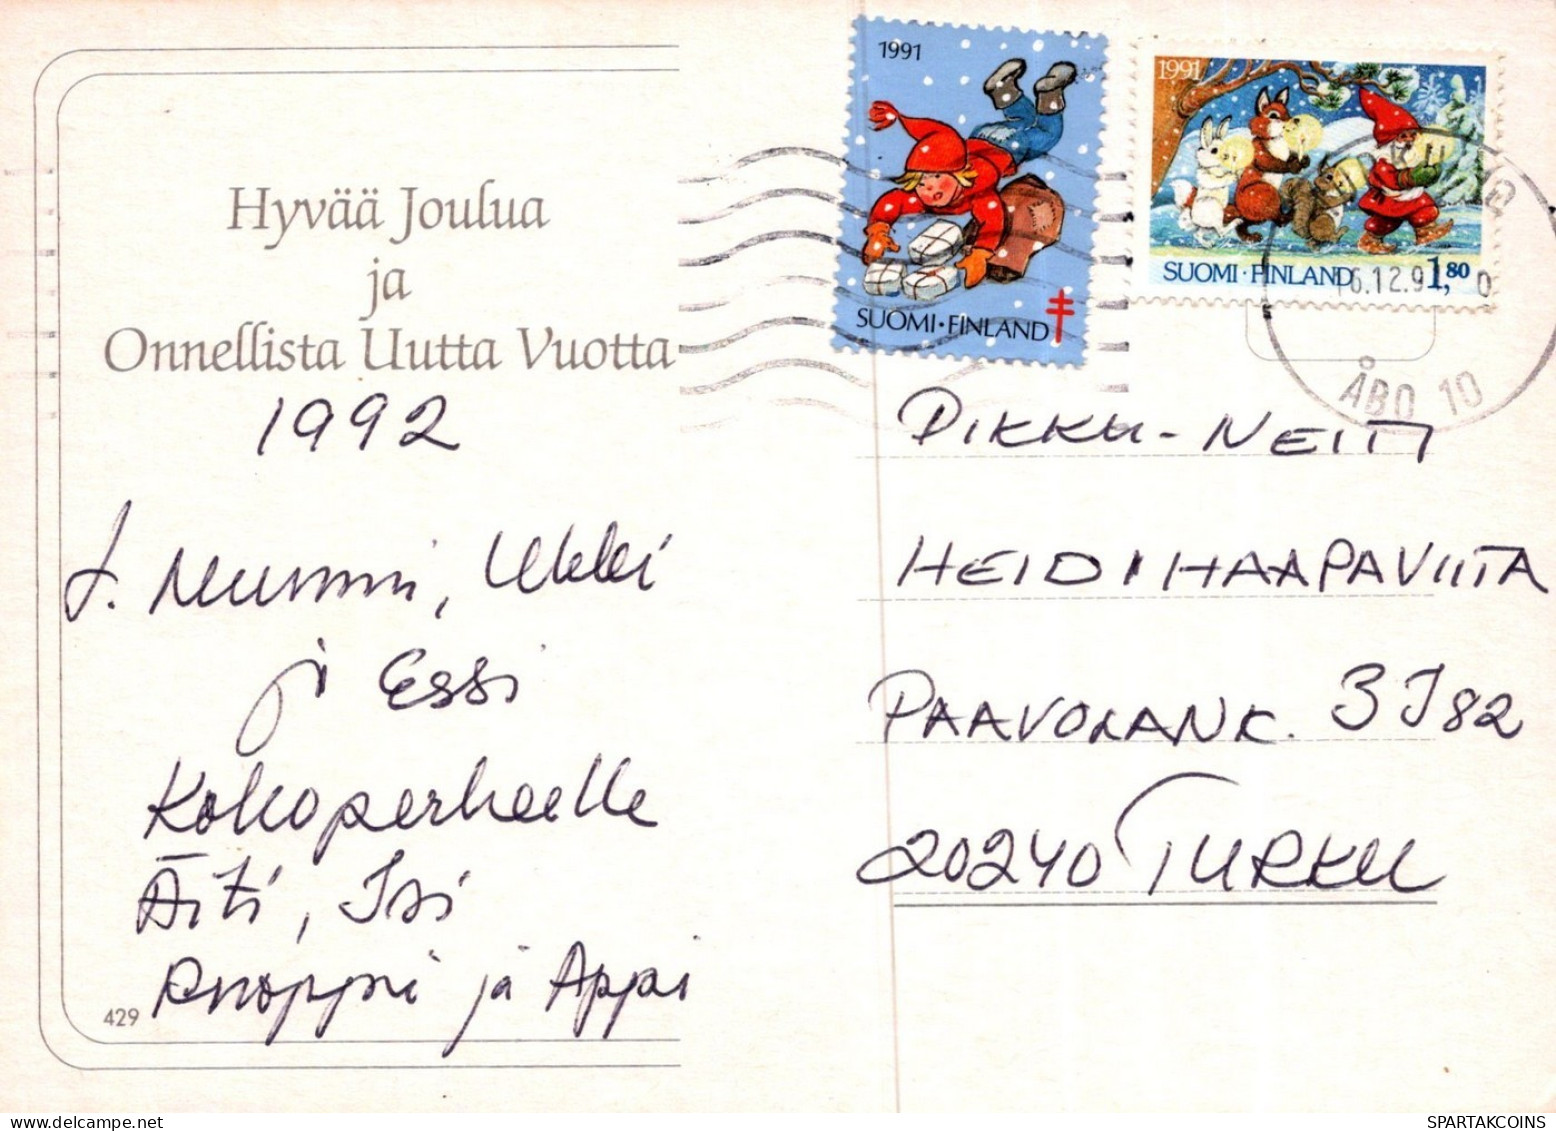 1991
SUOMI·FINLAND
1991
SUOMI·FINLAND 1,80
6.12.9
ÅBO 10
Hyvää Joulua
ja
Onnellista Uutta Vuotta
1992
T. Mummi, Ukki
ja Essi
Kokoperheelle
Äiti, Isi
ja Appi
429
PIKKU-NEITI
HEIDI HAAPAVIITA
PAAVOLANK. 3 J 82
20240 TURKU
SPARTAKCOINS